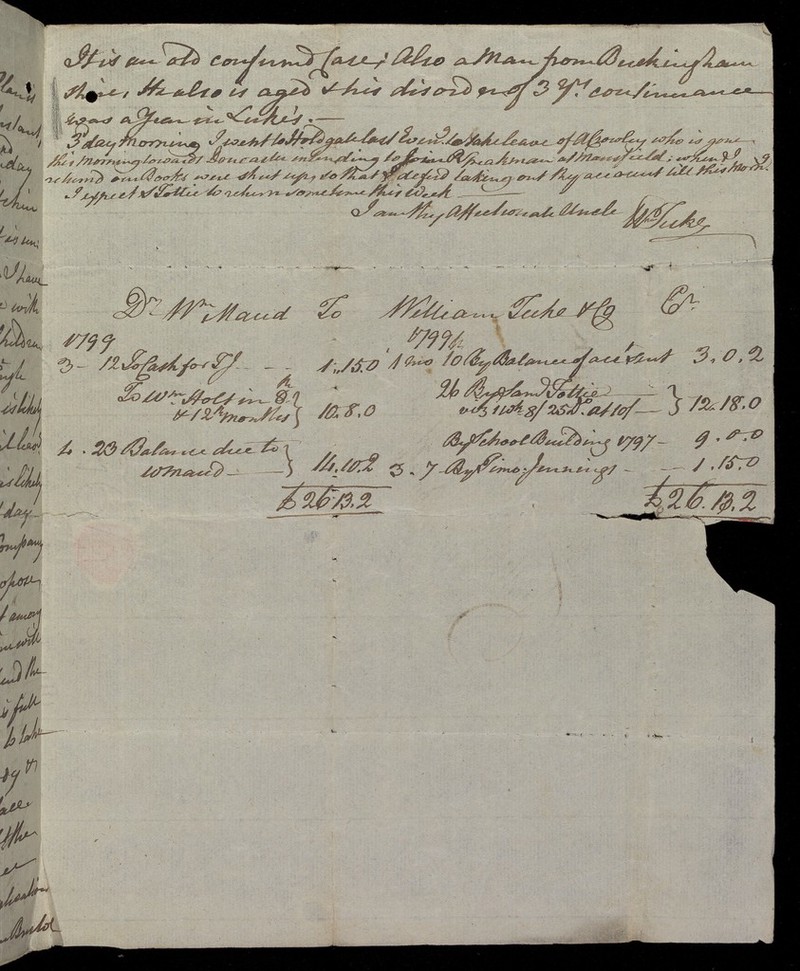 It is an old confirmd Case; Also a Man from Buckingham
shire, He also is aged & his disorder of 3 Yrs. continuance
was a Year in Luke's. —
3d day Morning I went to Holdgate last Even.g to take leave of A Crowley who is gone
this Morning towards Doncaster intending to join R Speakman at Mansfield; when I
returnd our Books were shut up, so that I deferd taking out thy account till this Mor.g
I expect S Tottie to return sometime this Week
I am thy Affectionate Uncle Wm Tuke
Dr Wm Maud To William Tuke & Co Cr.
1799 1799
3 - 12 To Cash for TJ - - - 1.15.0 1 mo 10 By Balance of acct sent 3.0.2
To Wm Holt in 8th
& 12th months } 10.8.0
26 By Sam Tottie
1 Wk 8/ 25 Do. at 10/ — } 12.18.0
4. 23 Balance due to
W Maud — } 14.10.2
By School Building 1797 — 9.0.0
3. 7 - By Timo: Jennings - - 1.15.0
£26.13.2 £26.13.2
day
I have
with
Children
is likely
is likely
day
Company
propose
among
will
and the
is full
to take
the
Build